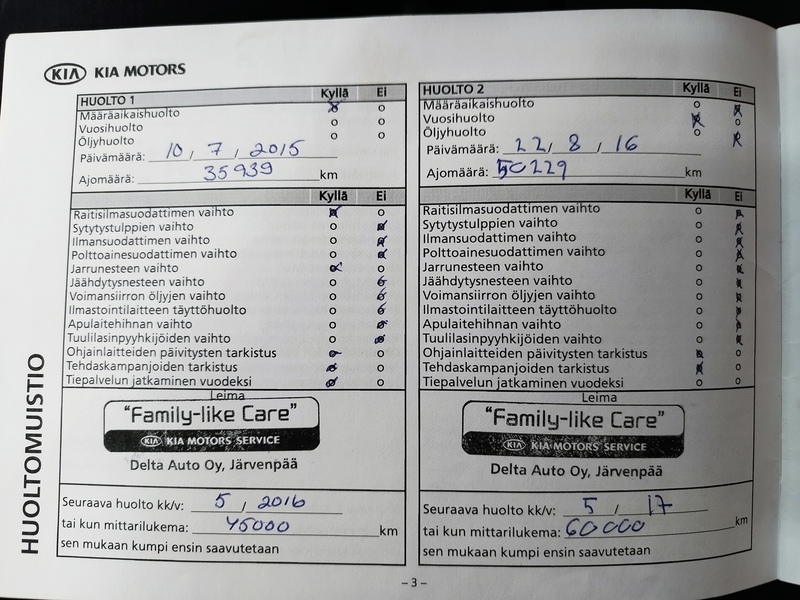 KIA KIA MOTORS
HUOLTOMUISTIO
HUOLTO 1 Kyllä Ei
Määräaikaishuolto
Vuosihuolto
Öljyhuolto
Päivämäärä: 10 / 7 / 2015
Ajomäärä: 35939 km
Kyllä Ei
Raitisilmasuodattimen vaihto
Sytytystulppien vaihto
Ilmansuodattimen vaihto
Polttoainesuodattimen vaihto
Jarrunesteen vaihto
Jäähdytysnesteen vaihto
Voimansiirron öljyjen vaihto
Ilmastointilaitteen täyttöhuolto
Apulaitehihnan vaihto
Tuulilasinpyyhkijöiden vaihto
Ohjainlaitteiden päivitysten tarkistus
Tehdaskampanjoiden tarkistus
Tiepalvelun jatkaminen vuodeksi
Leima
"Family-like Care"
KIA KIA MOTORS SERVICE
Delta Auto Oy, Järvenpää
Seuraava huolto kk/v: 5 / 2016
tai kun mittarilukema: 45000 km
sen mukaan kumpi ensin saavutetaan
HUOLTO 2 Kyllä Ei
Määräaikaishuolto
Vuosihuolto
Öljyhuolto
Päivämäärä: 22 / 8 / 16
Ajomäärä: 50229 km
Kyllä Ei
Raitisilmasuodattimen vaihto
Sytytystulppien vaihto
Ilmansuodattimen vaihto
Polttoainesuodattimen vaihto
Jarrunesteen vaihto
Jäähdytysnesteen vaihto
Voimansiirron öljyjen vaihto
Ilmastointilaitteen täyttöhuolto
Apulaitehihnan vaihto
Tuulilasinpyyhkijöiden vaihto
Ohjainlaitteiden päivitysten tarkistus
Tehdaskampanjoiden tarkistus
Tiepalvelun jatkaminen vuodeksi
Leima
"Family-like Care"
KIA KIA MOTORS SERVICE
Delta Auto Oy, Järvenpää
Seuraava huolto kk/v: 5 / 17
tai kun mittarilukema: 60000 km
sen mukaan kumpi ensin saavutetaan
– 3 –